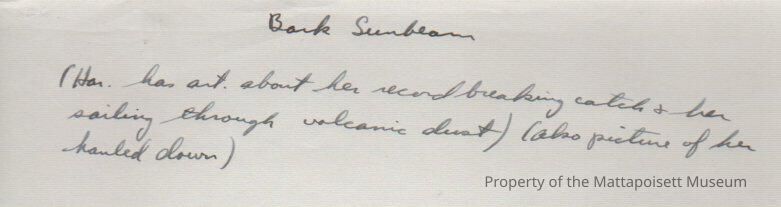 Bark Sunbeam
(Har. has art. about her record breaking catch & her
sailing through volcanic dust) (also picture of her
hauled down)
Property of the Mattapoisett Museum